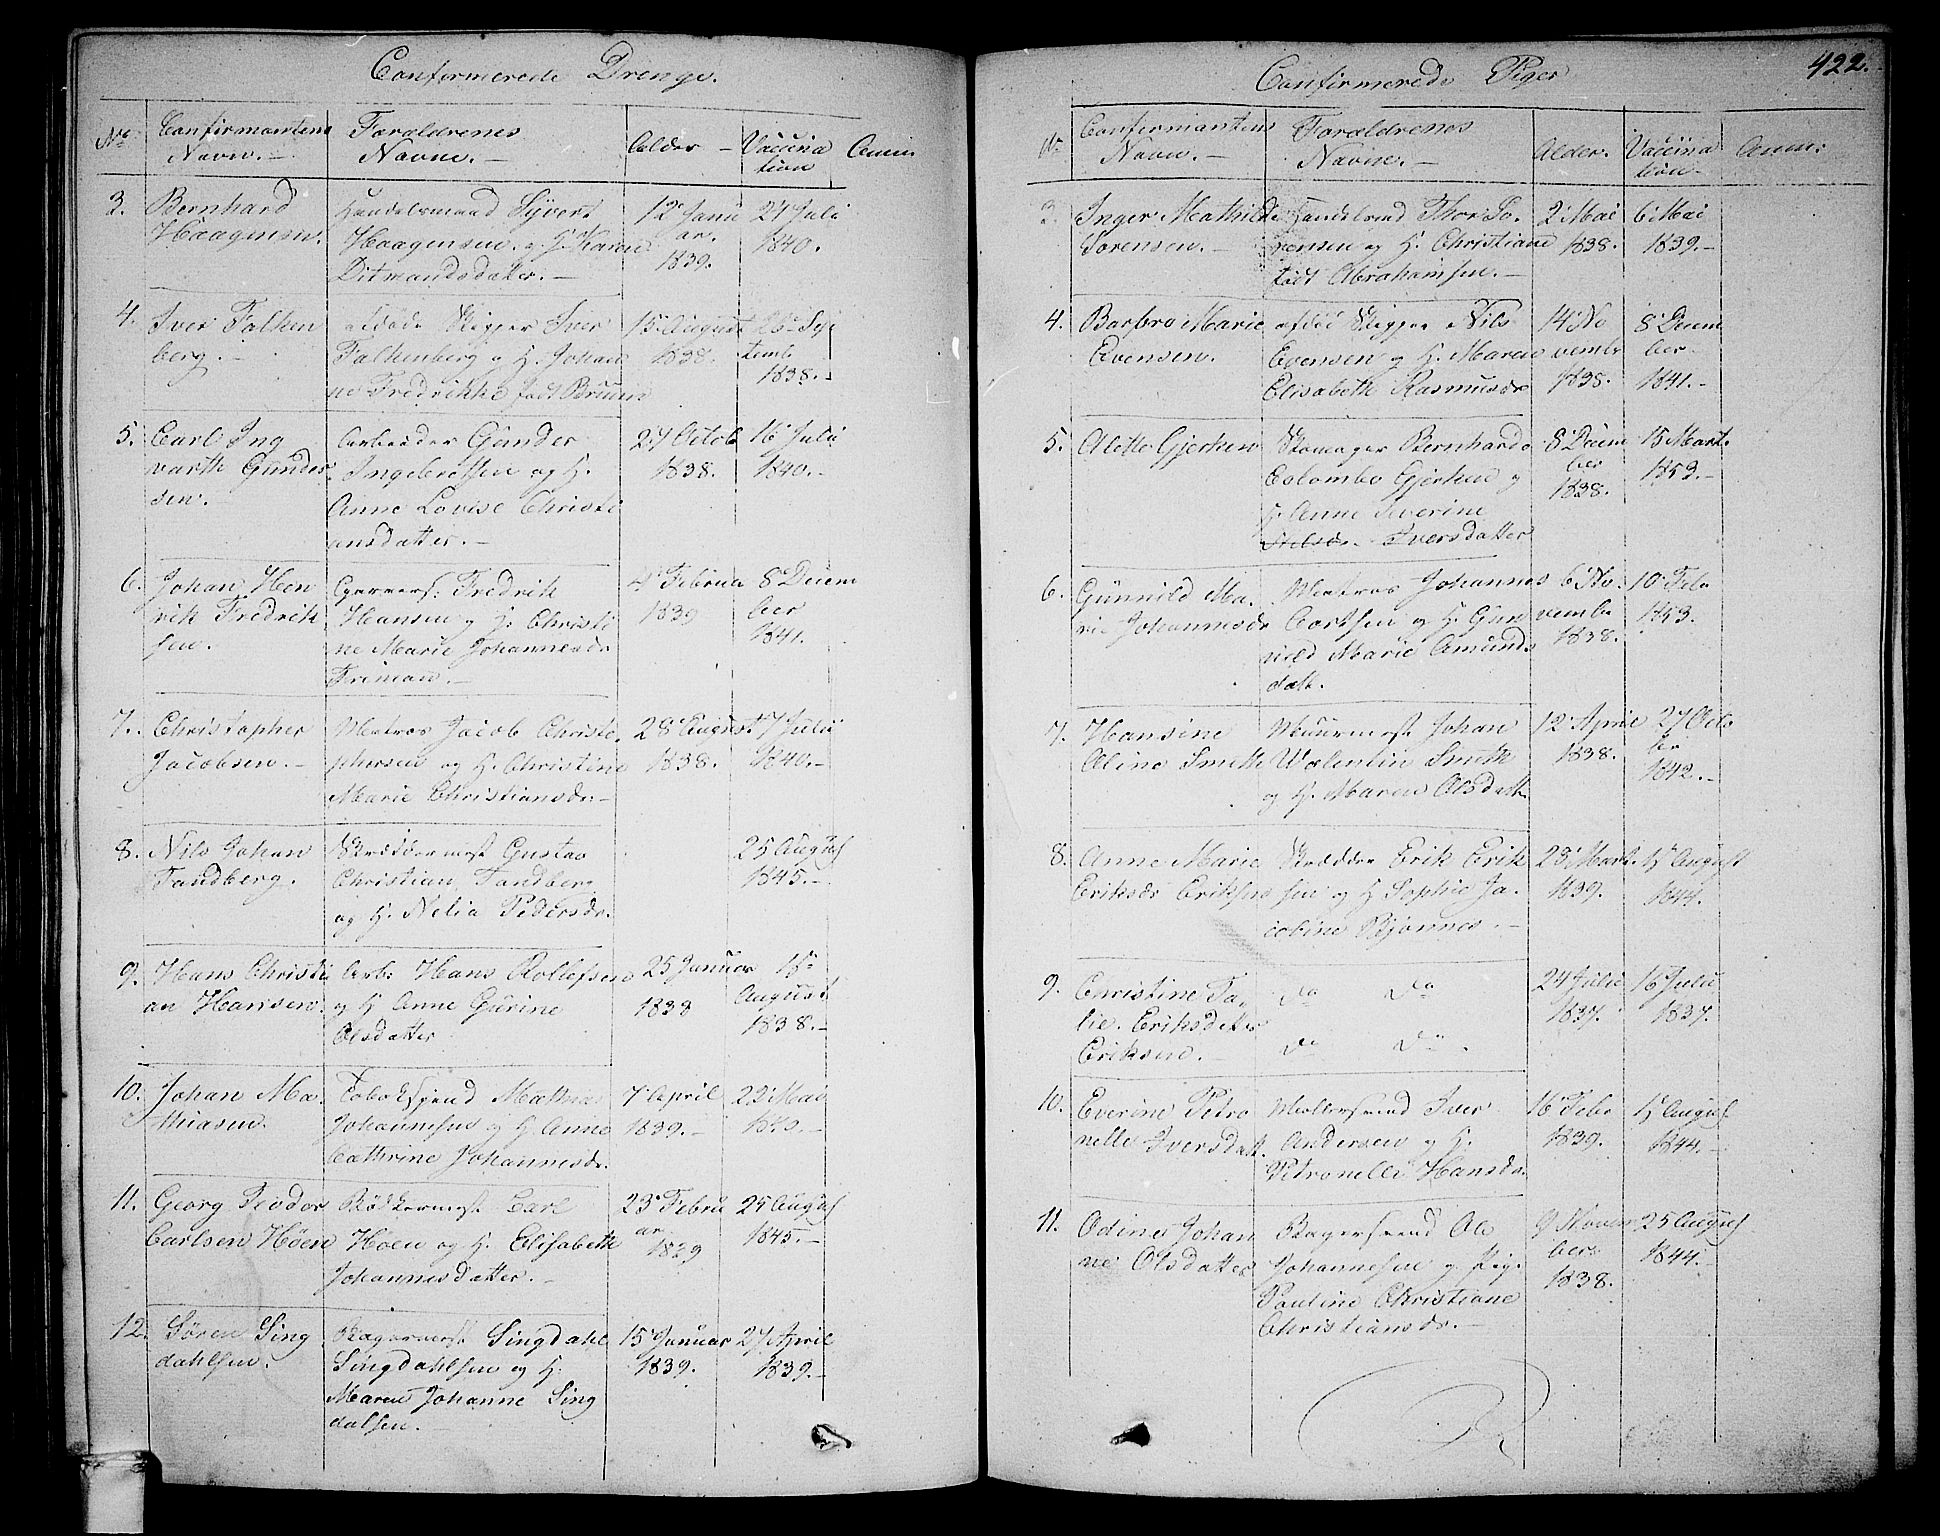 Confirmerede Drenge.
No
Confirmantens Navn. -
Forældrenes Navne. -
Alder -
Vaccination
Anm:
3. Bernhard Haagensen.
Handelsmand Syvert
Haagensen og H. Karen
Ditmandsdatter. -
12 Januar. 1839.
27 Juli 1840.
4. Iver Falkenberg. -
afdøde Skipper Iver
Falkenberg og H. Johan
ne Fredrikke født Bruun
15 August 1838.
26 Septemb 1838. -
5. Carl Ingvarth Gundersen. -
Arbeider Gunder
Ingebretsen og H.
Anne Lovise Christi
ansdatter. -
27 Octob 1838.
16 Juli 1840. -
6. Johan Henrik Fredriksen.
Fredrik
Hansen og H: Christi
ne Marie Johannesdr
Friman. -
4 Februa 1839
8 December 1841.
7. Christopher Jacobsen. -
Matros Jacob Christo
phersen og H. Christine
Marie Christiansdr -
28 August 1838.
7 Juli 1840. -
8. Nils Johan Tandberg.
Skræddermest Gustav
Christian Tandberg
og H. Nelia Pedersdr.
25 August 1845. -
9. Hans Christian Hansen.
Arb: Hans Rollefsen
og H Anne Gurine
Olsdatter
25 Januar 1839
15 August 1838. -
10. Johan Mathiasen.
Tobakspind Mathias
Johannesen og H. Anne
Cathrine Johannesdr.
7 April 1839. -
22 Mai 1840. -
11. Georg Teodor Carlsen Höen
Bödkermest Carl
Höen og H. Elisabeth
Johannesdatter. -
23 Februar 1839
25 August 1845. -
12. Søren Singdahlsen.
Bagermest Singdahl
Singdahlsen og H.
Maren Johanne Sing
dalsen. -
15 Januar 1839.
27 April 1839. -
Confirmerede Piger
422.
No
Confirmantens Navn. -
Forældrenes Navne. -
Alder.
Vaccination -
Anm:
3. Inger Mathilde Sorensen. -
Handelsmd Thor So
rensen og H. Christiane
født Abrahamsen. -
2 Mai 1838.
6 Mai 1839. -
4. Barbro Marie Evensen.
afdød Skipper Nils
Evensen og H. Maren
Elisabeth Rasmusdr
14 November 1838.
8 December 1841. -
5. Alette Gjerken
Skomager Bernhard
Colombo Gjerken og
H Anne Severine
Nilsdr. Iversdatter
8 December 1838.
15 Mart. 1853. -
6. Gunnild Marie Johannesdr
Matros Johannes
Carlsen og H. Gun
nild Marie Amunds
datt.
6 November 1838.
10 Feb 1853.
7. Hansine Aline Smith
Muurmest Johan
Walentin Smith
og H. Maren Olsdatt.
12 April 1838.
27 October 1842. -
8. Anne Marie Eriksdr Eriksen
Skrædder Erik Erik
sen og H Sophie Ja
cobine Bjönnes. -
23 Mart. 1839.
15 August 1844.
9. Christine Talie. Eriksdatter Eriksen. -
Do Do
Do Do .
24 Juli 1837.
16 Juli 1837.
10. Everine Petronelle Iversdatt.
Møllersvend Iver
Andersen og H.
Petronelle Hansdr
16 Feb 1839.
15 August 1844. -
11. Odine Johanne Olsdatter
Bagersvend Ole
Johannesen og Pig.
Pauline Christiane
Christiansdr. -
9 November 1838.
25 August 1844. -